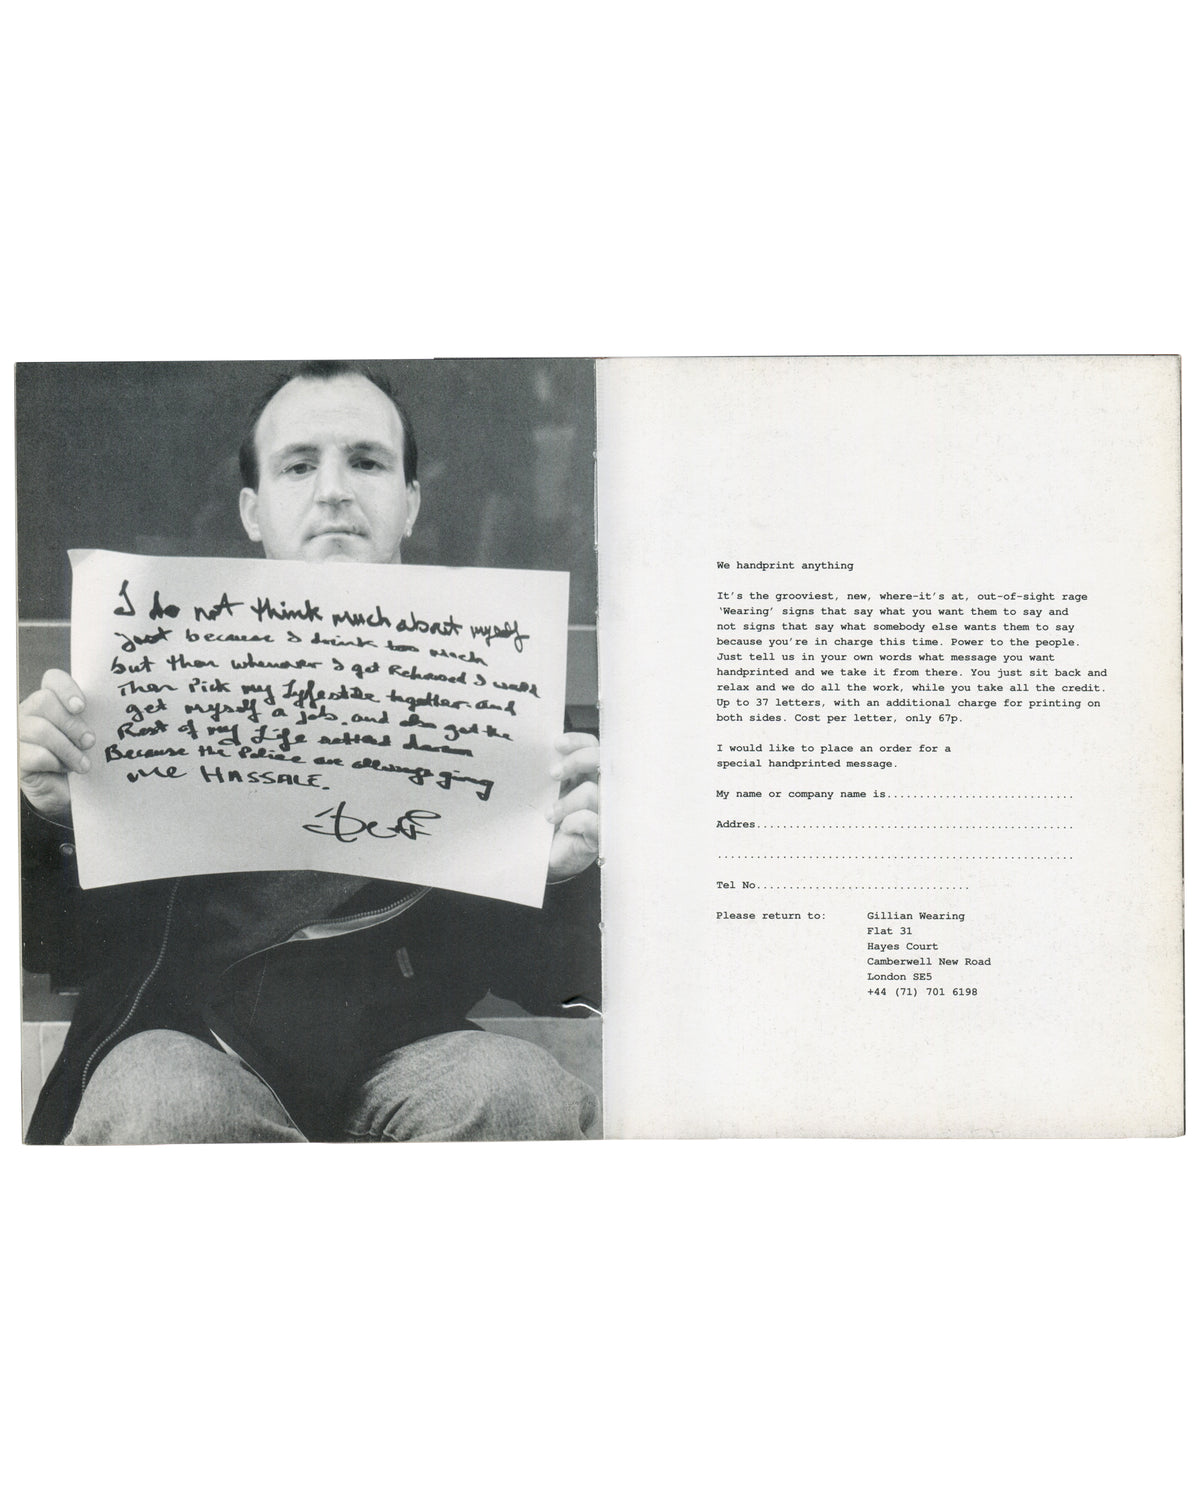 I do not think much about myself
just because I drink too much
but then whenever I get Rehoused I will
Then Pick my Lyfestile together. and
get myself a job. and also get the
Rest of my Life settled down
Because the Police are allways giving
me HASSALE.
We handprint anything
It's the grooviest, new, where-it's at, out-of-sight rage
'Wearing' signs that say what you want them to say and
not signs that say what somebody else wants them to say
because you're in charge this time. Power to the people.
Just tell us in your own words what message you want
handprinted and we take it from there. You just sit back and
relax and we do all the work, while you take all the credit.
Up to 37 letters, with an additional charge for printing on
both sides. Cost per letter, only 67p.
I would like to place an order for a
special handprinted message.
My name or company name is............................
Addres.................................................
.......................................................
Tel No.................................
Please return to: Gillian Wearing
Flat 31
Hayes Court
Camberwell New Road
London SE5
+44 (71) 701 6198